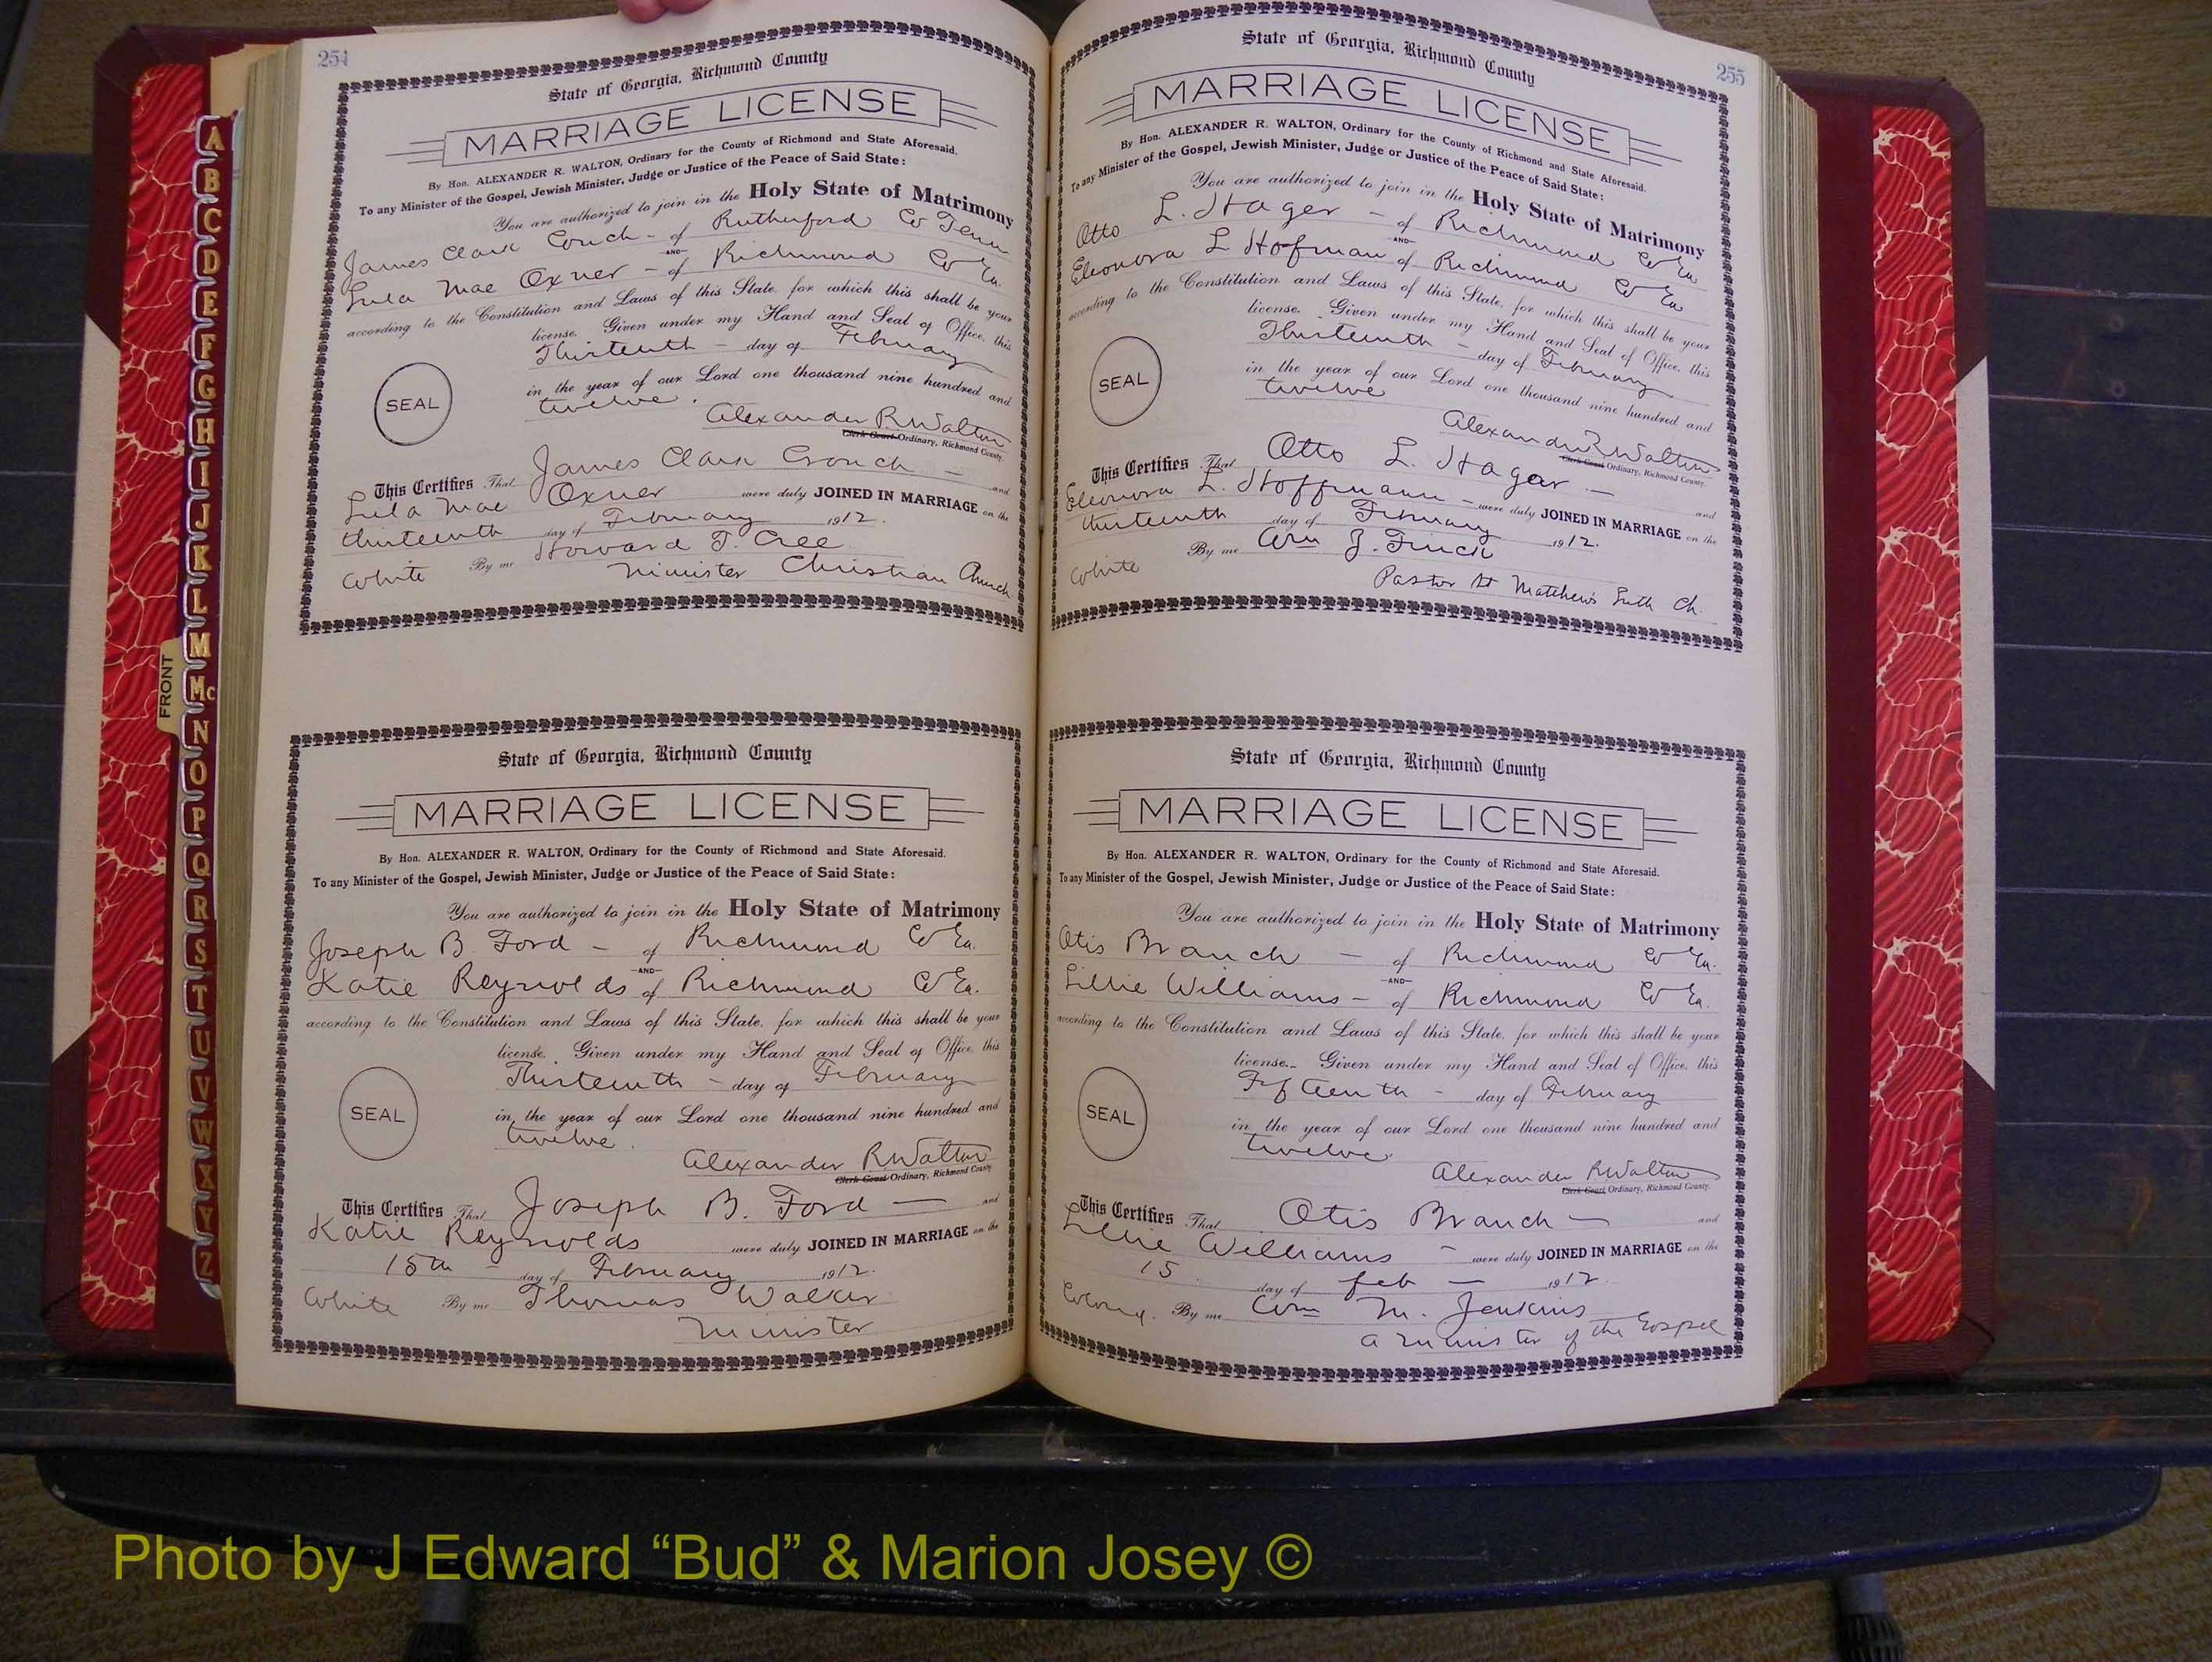 254
State of Georgia, Richmond County
MARRIAGE LICENSE
By Hon. ALEXANDER R. WALTON, Ordinary for the County of Richmond and State Aforesaid.
To any Minister of the Gospel, Jewish Minister, Judge or Justice of the Peace of Said State:
You are authorized to join in the Holy State of Matrimony
James Clark Couch - of Rutherford Co Tenn
AND
Lula Mae Oxner - of Richmond Co Ga.
according to the Constitution and Laws of this State, for which this shall be your
license. Given under my Hand and Seal of Office, this
Thirteenth - day of February
in the year of our Lord one thousand nine hundred and
twelve.
SEAL
Alexander R Walton
Clerk Court Ordinary, Richmond County.
This Certifies That James Clark Crouch - and
Lula Mae Oxner were duly JOINED IN MARRIAGE on the
thirteenth day of February 1912.
By me Howard T. Cree
White Minister Christian Church
State of Georgia, Richmond County
MARRIAGE LICENSE
By Hon. ALEXANDER R. WALTON, Ordinary for the County of Richmond and State Aforesaid.
To any Minister of the Gospel, Jewish Minister, Judge or Justice of the Peace of Said State:
You are authorized to join in the Holy State of Matrimony
Joseph B Ford - of Richmond Co Ga.
AND
Katie Reynolds of Richmond Co Ga.
according to the Constitution and Laws of this State, for which this shall be your
license. Given under my Hand and Seal of Office, this
Thirteenth - day of February
in the year of our Lord one thousand nine hundred and
twelve.
SEAL
Alexander R Walton
Clerk Court Ordinary, Richmond County
This Certifies That Joseph B. Ford - and
Katie Reynolds were duly JOINED IN MARRIAGE on the
15th - day of February 1912.
White By me Thomas Walker
Minister
255
State of Georgia, Richmond County
MARRIAGE LICENSE
By Hon. ALEXANDER R. WALTON, Ordinary for the County of Richmond and State Aforesaid.
To any Minister of the Gospel, Jewish Minister, Judge or Justice of the Peace of Said State:
You are authorized to join in the Holy State of Matrimony
Otto L. Hager - of Richmond Co Ga
AND
Eleonora L Hofman of Richmond Co Ga
according to the Constitution and Laws of this State, for which this shall be your
license. Given under my Hand and Seal of Office, this
Thirteenth - day of February
in the year of our Lord one thousand nine hundred and
twelve
SEAL
Alexander R Walton
Clerk Court Ordinary, Richmond County.
This Certifies That Otto L. Hager - and
Eleonora L. Hoffmann - were duly JOINED IN MARRIAGE on the
thirteenth day of February 1912.
White By me Wm J. Finck
Pastor St Matthew's Luth Ch.
State of Georgia, Richmond County
MARRIAGE LICENSE
By Hon. ALEXANDER R. WALTON, Ordinary for the County of Richmond and State Aforesaid.
To any Minister of the Gospel, Jewish Minister, Judge or Justice of the Peace of Said State:
You are authorized to join in the Holy State of Matrimony
Otis Branch - of Richmond Co Ga.
AND
Lillie Williams - of Richmond Co Ga.
according to the Constitution and Laws of this State, for which this shall be your
license. Given under my Hand and Seal of Office, this
Fifteenth - day of February
in the year of our Lord one thousand nine hundred and
twelve.
SEAL
Alexander R Walton
Clerk Court Ordinary, Richmond County.
This Certifies That Otis Branch - and
Lillie Williams - were duly JOINED IN MARRIAGE on the
15 day of Feb - 1912
By me Wm M. Jenkins
a Minister of the Gospel
FRONT
A
B
C
D
E
F
G
H
I
J
K
L
M
Mc
N
O
P
Q
R
S
T
U
V
W
X
Y
Z
Photo by J Edward “Bud” & Marion Josey ©